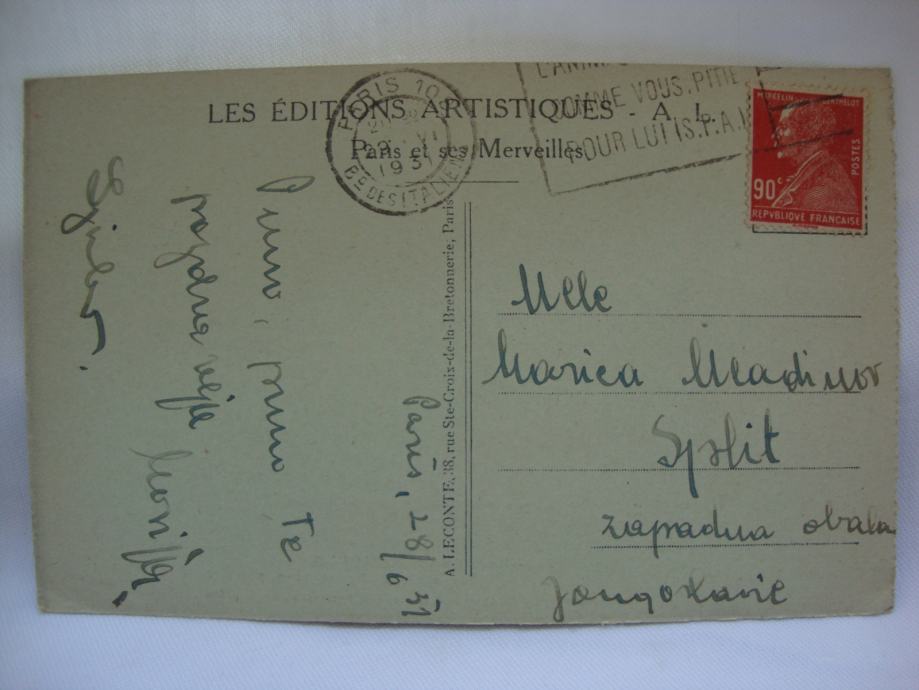 LES ÉDITIONS ARTISTIQUES - A. L.
Paris et ses Merveilles
PARIS 10
VI
1931
Bᴅ DES ITALIENS
L'ANIM
HOMME VOUS. PITIE
POUR LUI! S.P.A.
MARCELIN BERTHELOT
POSTES
90c
REPVBLIQVE FRANÇAISE
A. LECONTE, 38, rue Ste-Croix-de-la-Bretonnerie, Paris
Paris, 28/6 31
Puno, puno Te
pozdravlja
Mlle
Marica Mladinov
Split
zapadna obala
Jougoslavie